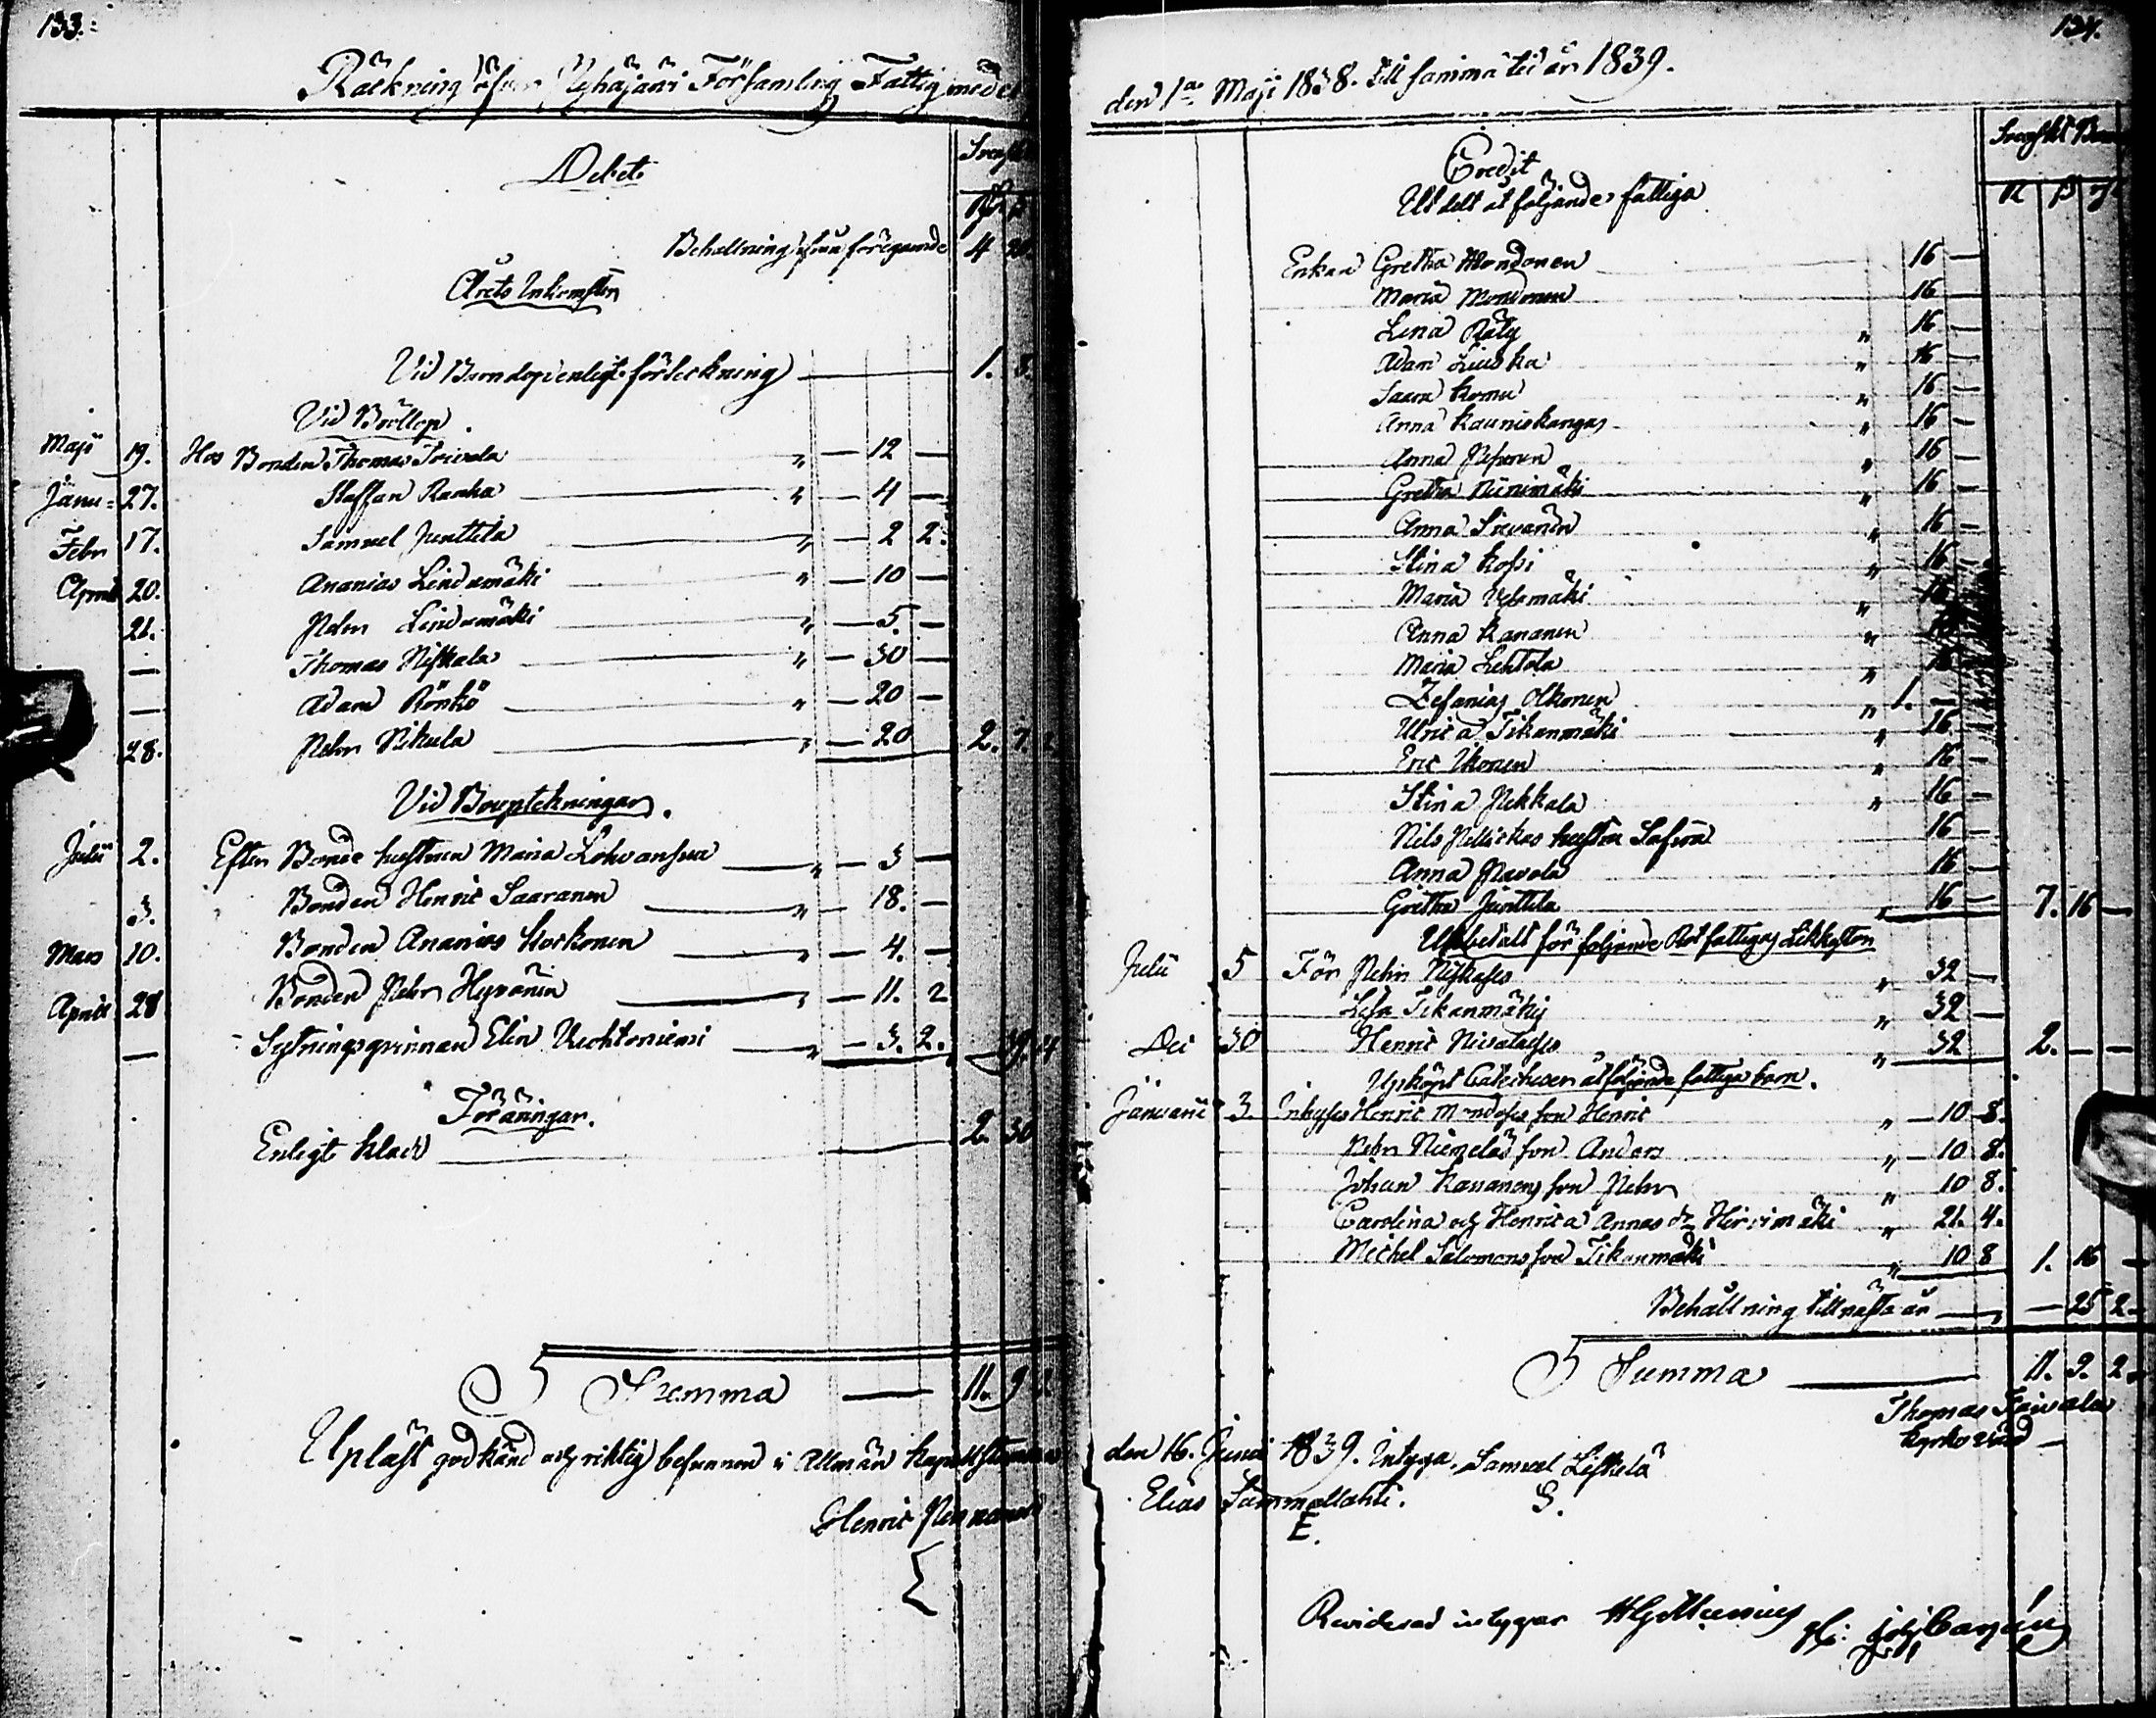 133.
Räkning öfver Pyhäjärvi Församling Fattigmedel
Debet
Behållning från föregående 4 20.
Årets Inkomster
Vid Barndop enligt förteckning 1. 3.
Vid Bröllop.
Maji 19. Hos Bonden Thomas Toivola " — 12 —
Janu: 27. Staffan Ranka " — 4 —
Febr 17. Samuel Junttila " — 2 2.
April 20. Ananias Lindamäki " — 10 —
21. Pehr Lindamäki " — 5. —
— Thomas Niskala " — 30 —
— Adam Rönkö " — 20 —
28. Pehr Nikula " — 20 2. 7.
Vid Bouptekningar.
Julii 2. Efter Bonde hustrun Maria " — 3 —
3. Bonden Henric Saaranen " — 18. —
Mars 10. Bonden Ananias Korkonen " — 4. —
April 28 Bonden Pehr Hyvönen " — 11. 2
— Sytningsqvinnan Elin Vuohtoniemi " — 3. 2. — 39. 4
Föräringar.
Enligt klad 2. 30
Summa 11. 9
Upläst godkänd och riktig befunnen i Allmän
Henric Pennanen
134.
den 1a Maji 1838. till samma tid år 1839.
Credit
Utdelt åt följande fattiga
R β
Enkan Gretha Mondonen 16 —
Maria Mondonen 16 —
Lena Räty " 16 —
Adam Liuska " 16 —
Saara Komu " 16 —
Anna Kauniskangas " 16 —
Anna " 16 —
Gretha Niinimäki " 16 —
Anna " 16 —
Stina Kossi " 16 —
Maria " 16
Anna Kananen "
Maria Lehtola " 16
Zefanias Olkonen " 1. —
Ulrica Tikanmäki " 16.
Eric Ikonen " 16 —
Stina Pekkala " 16 —
Nils hustru 16 —
Anna Pavola 16 —
Gretha Junttila " 16 — 7. 16 —
Utbetalt för följande Rotfattigas Likkistor
Julii 5 För Pehr " 32 —
Lisa Tikanmäki " 32 —
Dec 30 Henric " 32 2. — —
Upköpt Catecheser åt följande fattiga barn.
Januarii 3. Inhyses Henric son Henric " — 10 8.
Pehr Niemeläs son Anders " — 10 8.
Johan Kananens son Pehr " 10 8.
Carolina och Henrica Annas Hirvimäki " 21. 4.
Michel Salomons son Tikanmäki " 10 8 1. 16 —
Behållning till nästa år — 25 2
Summa 11. 9. 2
Thomas Toivala
Kyrkovärd
den 16. Junii 1839. Intyga. Samuel
Elias Sammallahti. S.
E.
Reviderad intygar